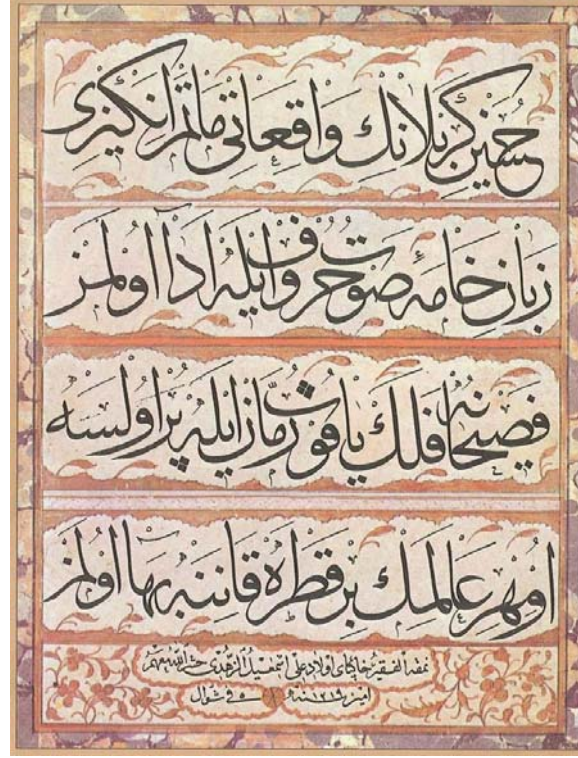 حسين كربلانك واقعاتى ماتم انكيزى
زبان خامهٔ صوت حروف ايله ادا اولمز
فصيحانه فلك ياقوت رمان ايله پر اولسه
او مهر عالمك بر قطره قاننه بها اولمز
نمقه الفقير خاكپاى اولاد على اسمعيل الزهدى حشره الله معهم
امين سنه ١٢١٩ فى ٥ شوال